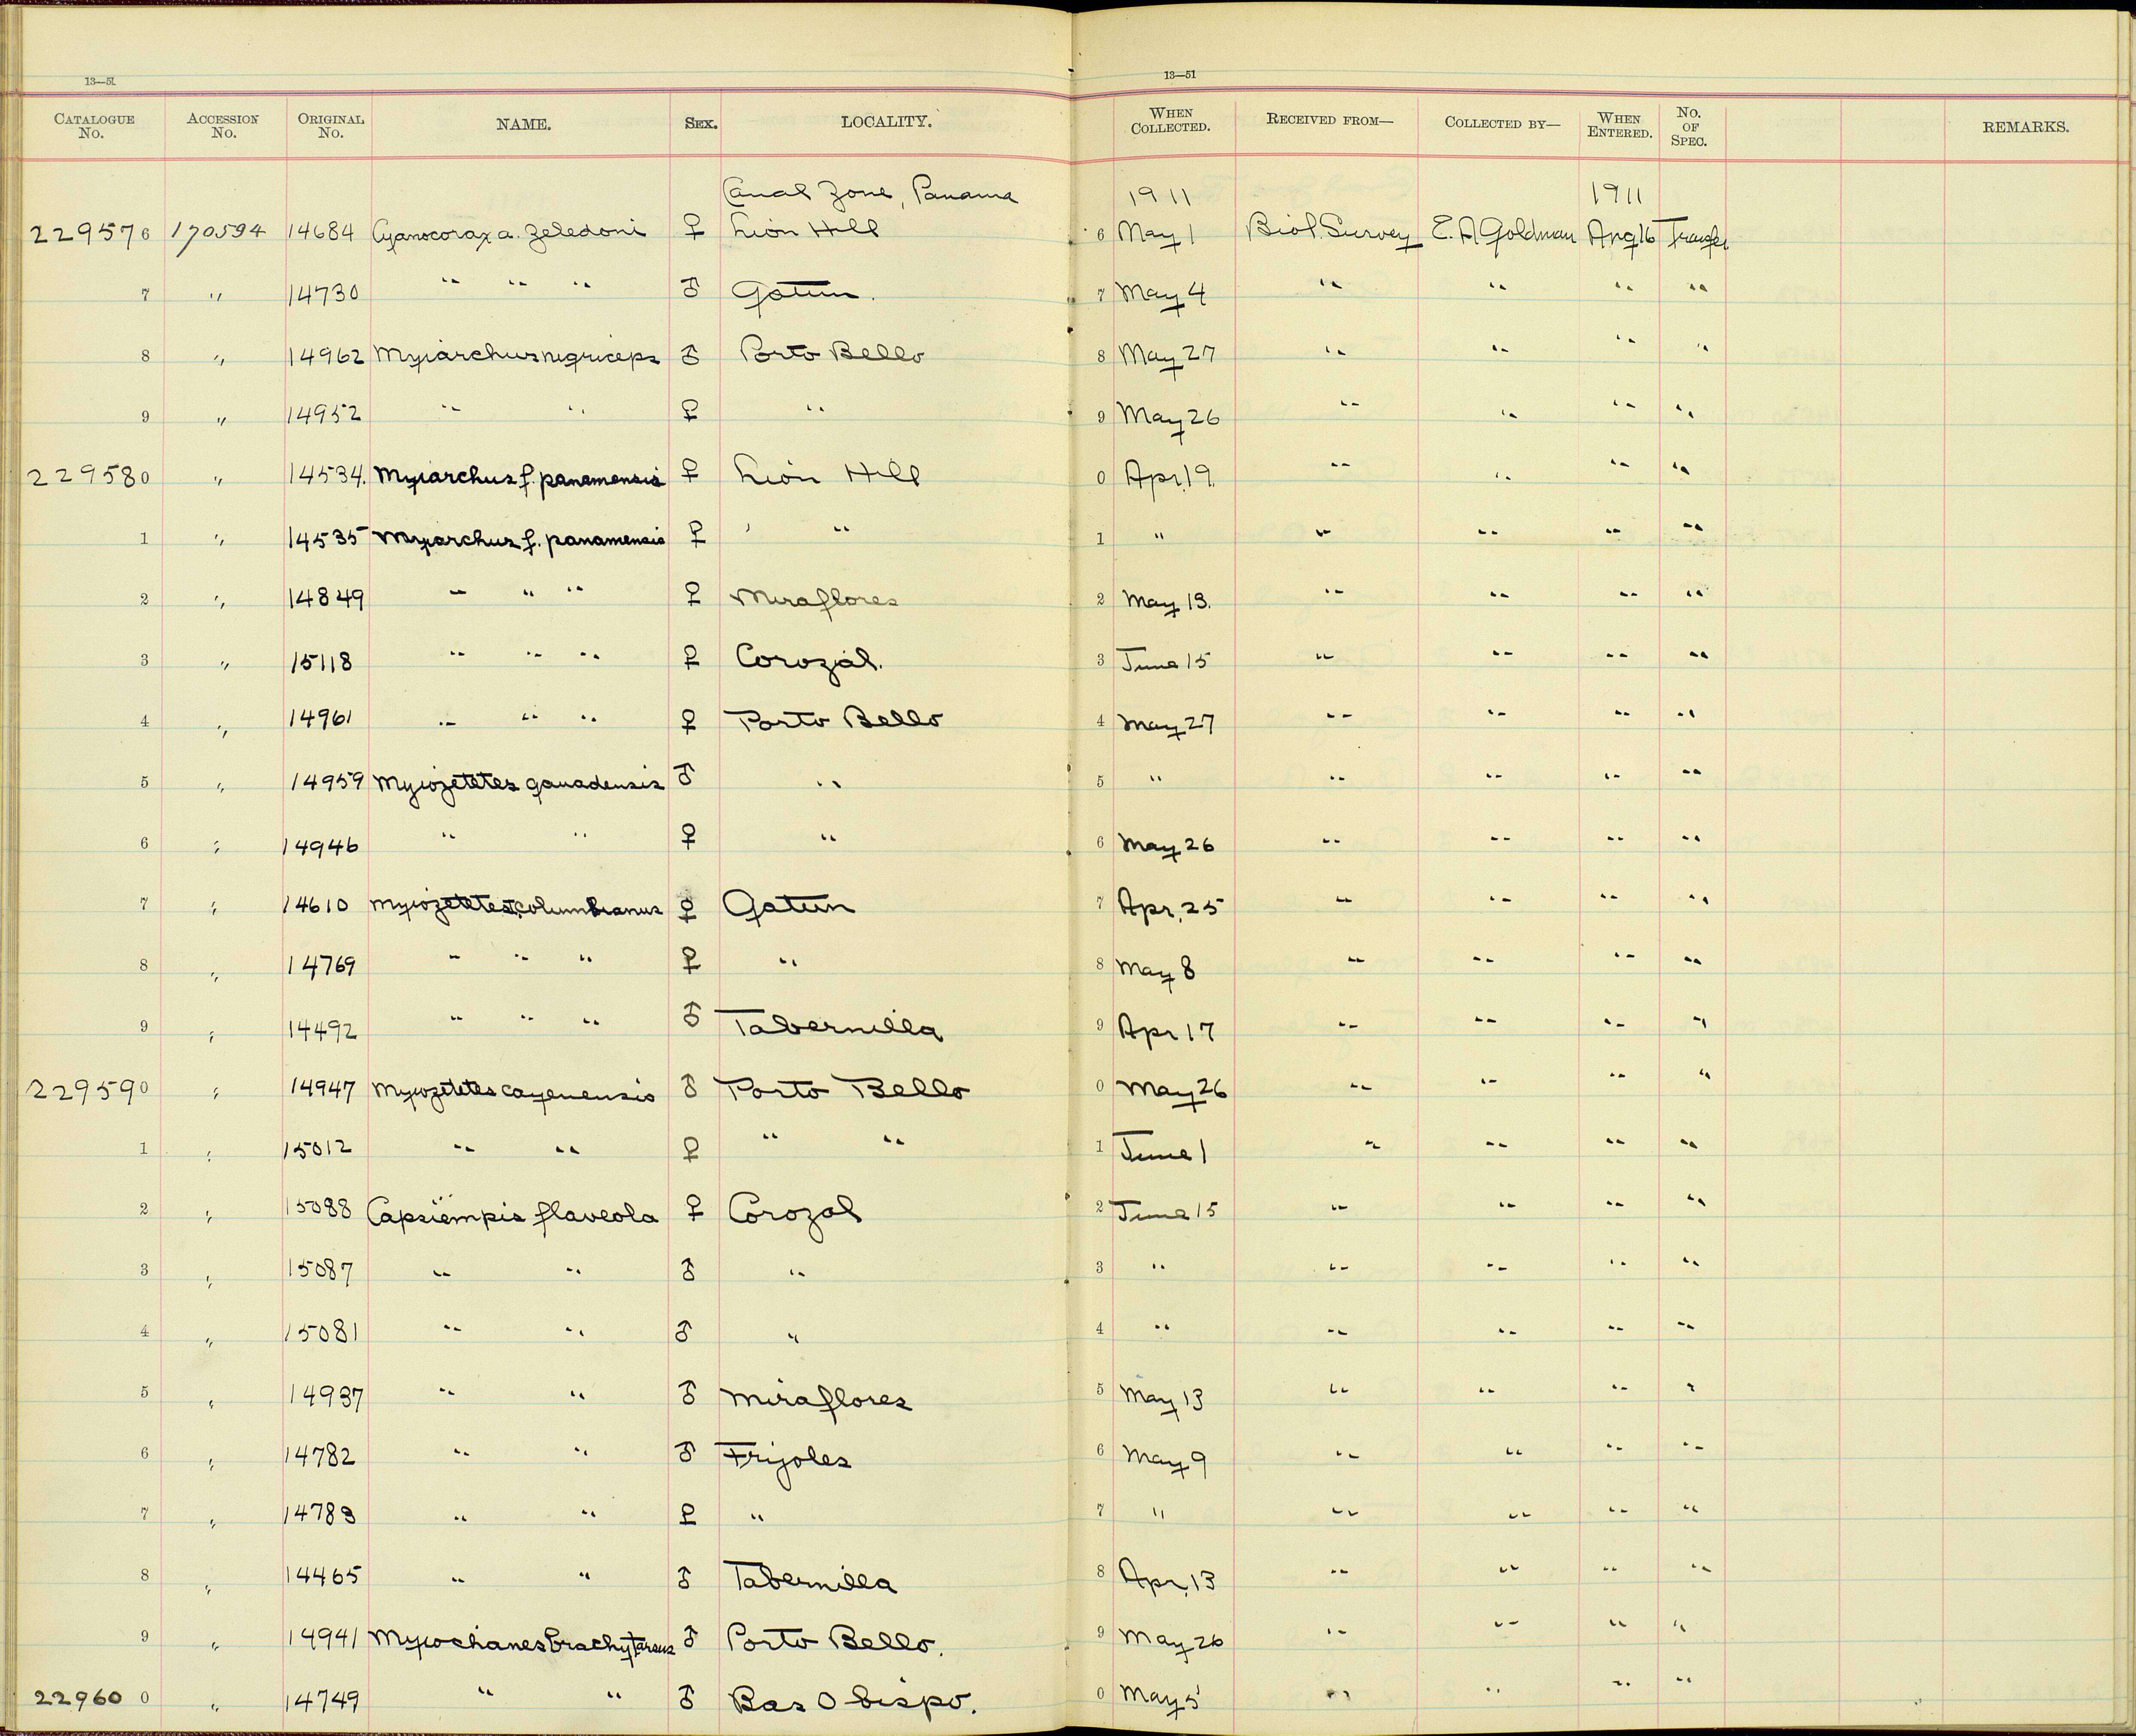 13—51 13—51
CATALOGUE No. ACCESSION No. ORIGINAL No. NAME. SEX. LOCALITY. WHEN COLLECTED. RECEIVED FROM— COLLECTED BY— WHEN ENTERED. No. OF SPEC. REMARKS.
Canal Zone, Panama 1911 1911
229576 170594 14684 Cyanocorax a. zeledoni ♀ Lion Hill 6 May 1 Biol. Survey E. A Goldman Aug 16 Transfer
7 " 14730 " " " ♂ Gatun. 7 May 4 " " " "
8 " 14962 Myiarchus nigriceps ♂ Porto Bello 8 May 27 " " " "
9 " 14952 " " ♀ " 9 May 26 " " " "
229580 " 14534. Myiarchus f. panamensis ♀ Lion Hill 0 Apr. 19. " " " "
1 " 14535 Myiarchus f. panamensis ♀ " " 1 " " " " "
2 " 14849 " " " ♀ Miraflores 2 May 13. " " " "
3 " 15118 " " " ♀ Corozal. 3 June 15 " " " "
4 " 14961 " " " ♀ Porto Bello 4 May 27 " " " "
5 " 14959 Myiozetetes ganadensis ♂ " 5 " " " " "
6 " 14946 " " ♀ " 6 May 26 " " " "
7 " 14610 Myiozetetes t. columbianus ♀ Gatun 7 Apr. 25 " " " "
8 " 14769 " " " ♀ " 8 May 8 " " " "
9 " 14492 " " " ♂ Tabernilla 9 Apr 17 " " " "
229590 " 14947 Myiozetetes cayenensis ♂ Porto Bello 0 May 26 " " " "
1 " 15012 " " ♀ " " 1 June 1 " " " "
2 " 15088 Capsiempis flaveola ♀ Corozal 2 June 15 " " " "
3 " 15087 " " ♂ " 3 " " " " "
4 " 15081 " " ♂ " 4 " " " " "
5 " 14937 " " ♂ Miraflores 5 May 13 " " " "
6 " 14782 " " ♂ Frijoles 6 May 9 " " " "
7 " 14783 " " ♀ " 7 " " " " "
8 " 14465 " " ♂ Tabernilla 8 Apr. 13 " " " "
9 " 14941 Myiochanes brachytarsus ♂ Porto Bello. 9 May 26 " " " "
229600 " 14749 " " ♂ Bas Obispo. 0 May 5 " " " "